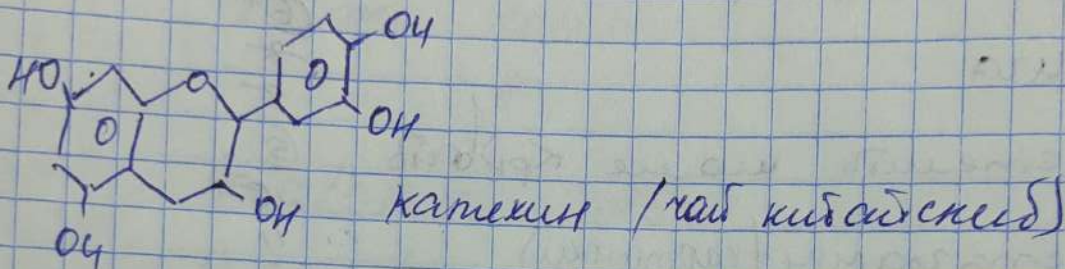 OH
HO
O
OH
OH
OH
катехин (чай китайский)